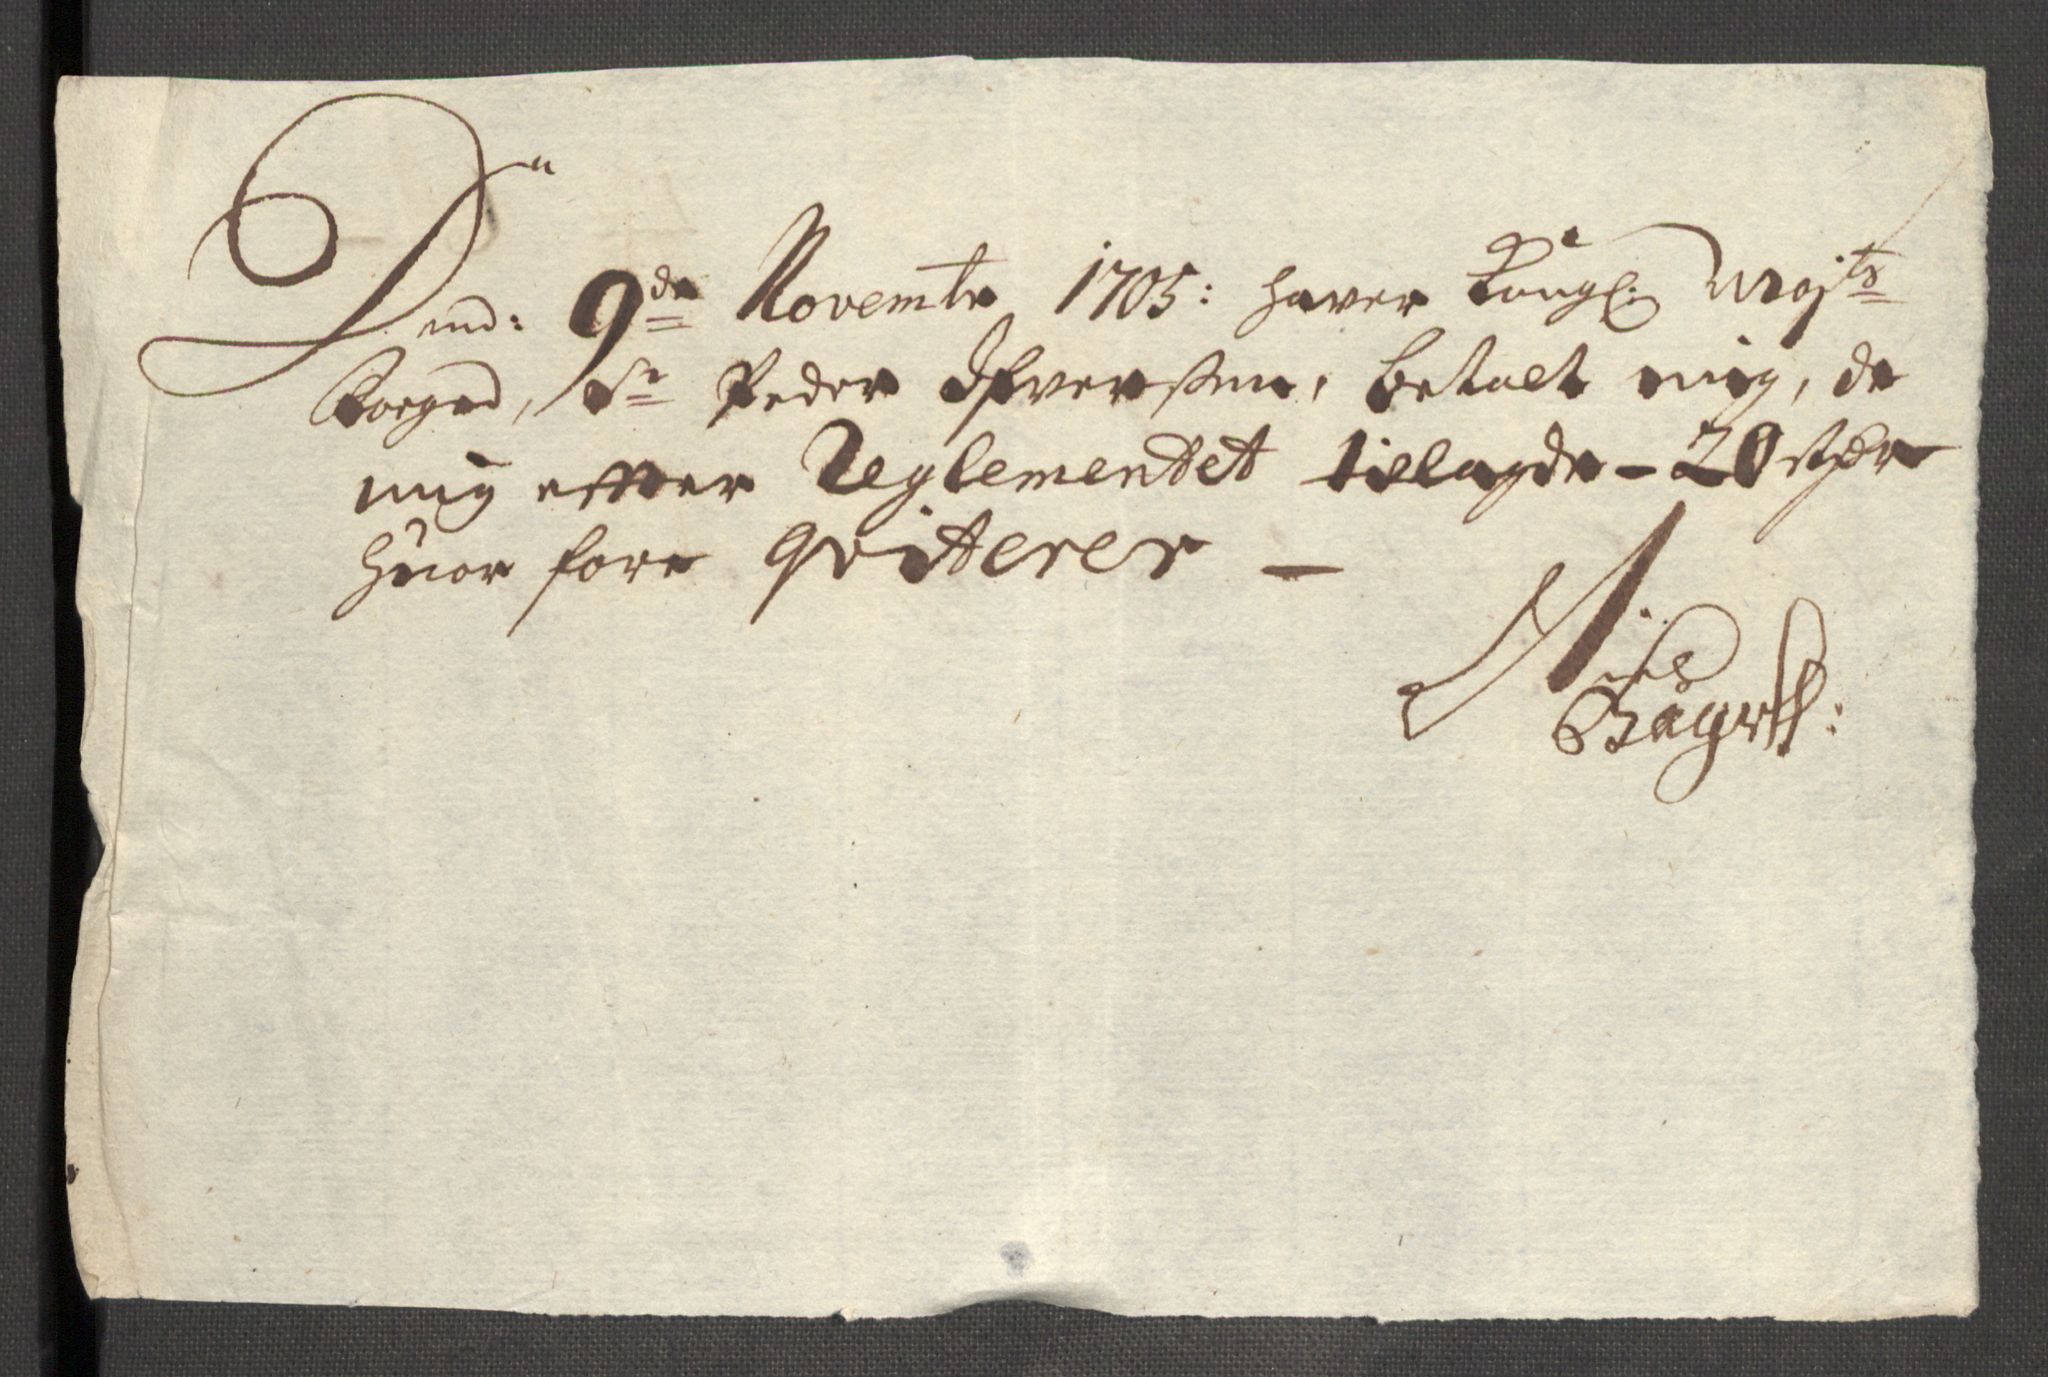 Dend: 9de Novembr 1705: haver Kongl: Majts
Foged, Sr Peder Ifversen, betalt mig, de
mig efter Reglementet tilagde - 20
huor fore qviterer -
Niels